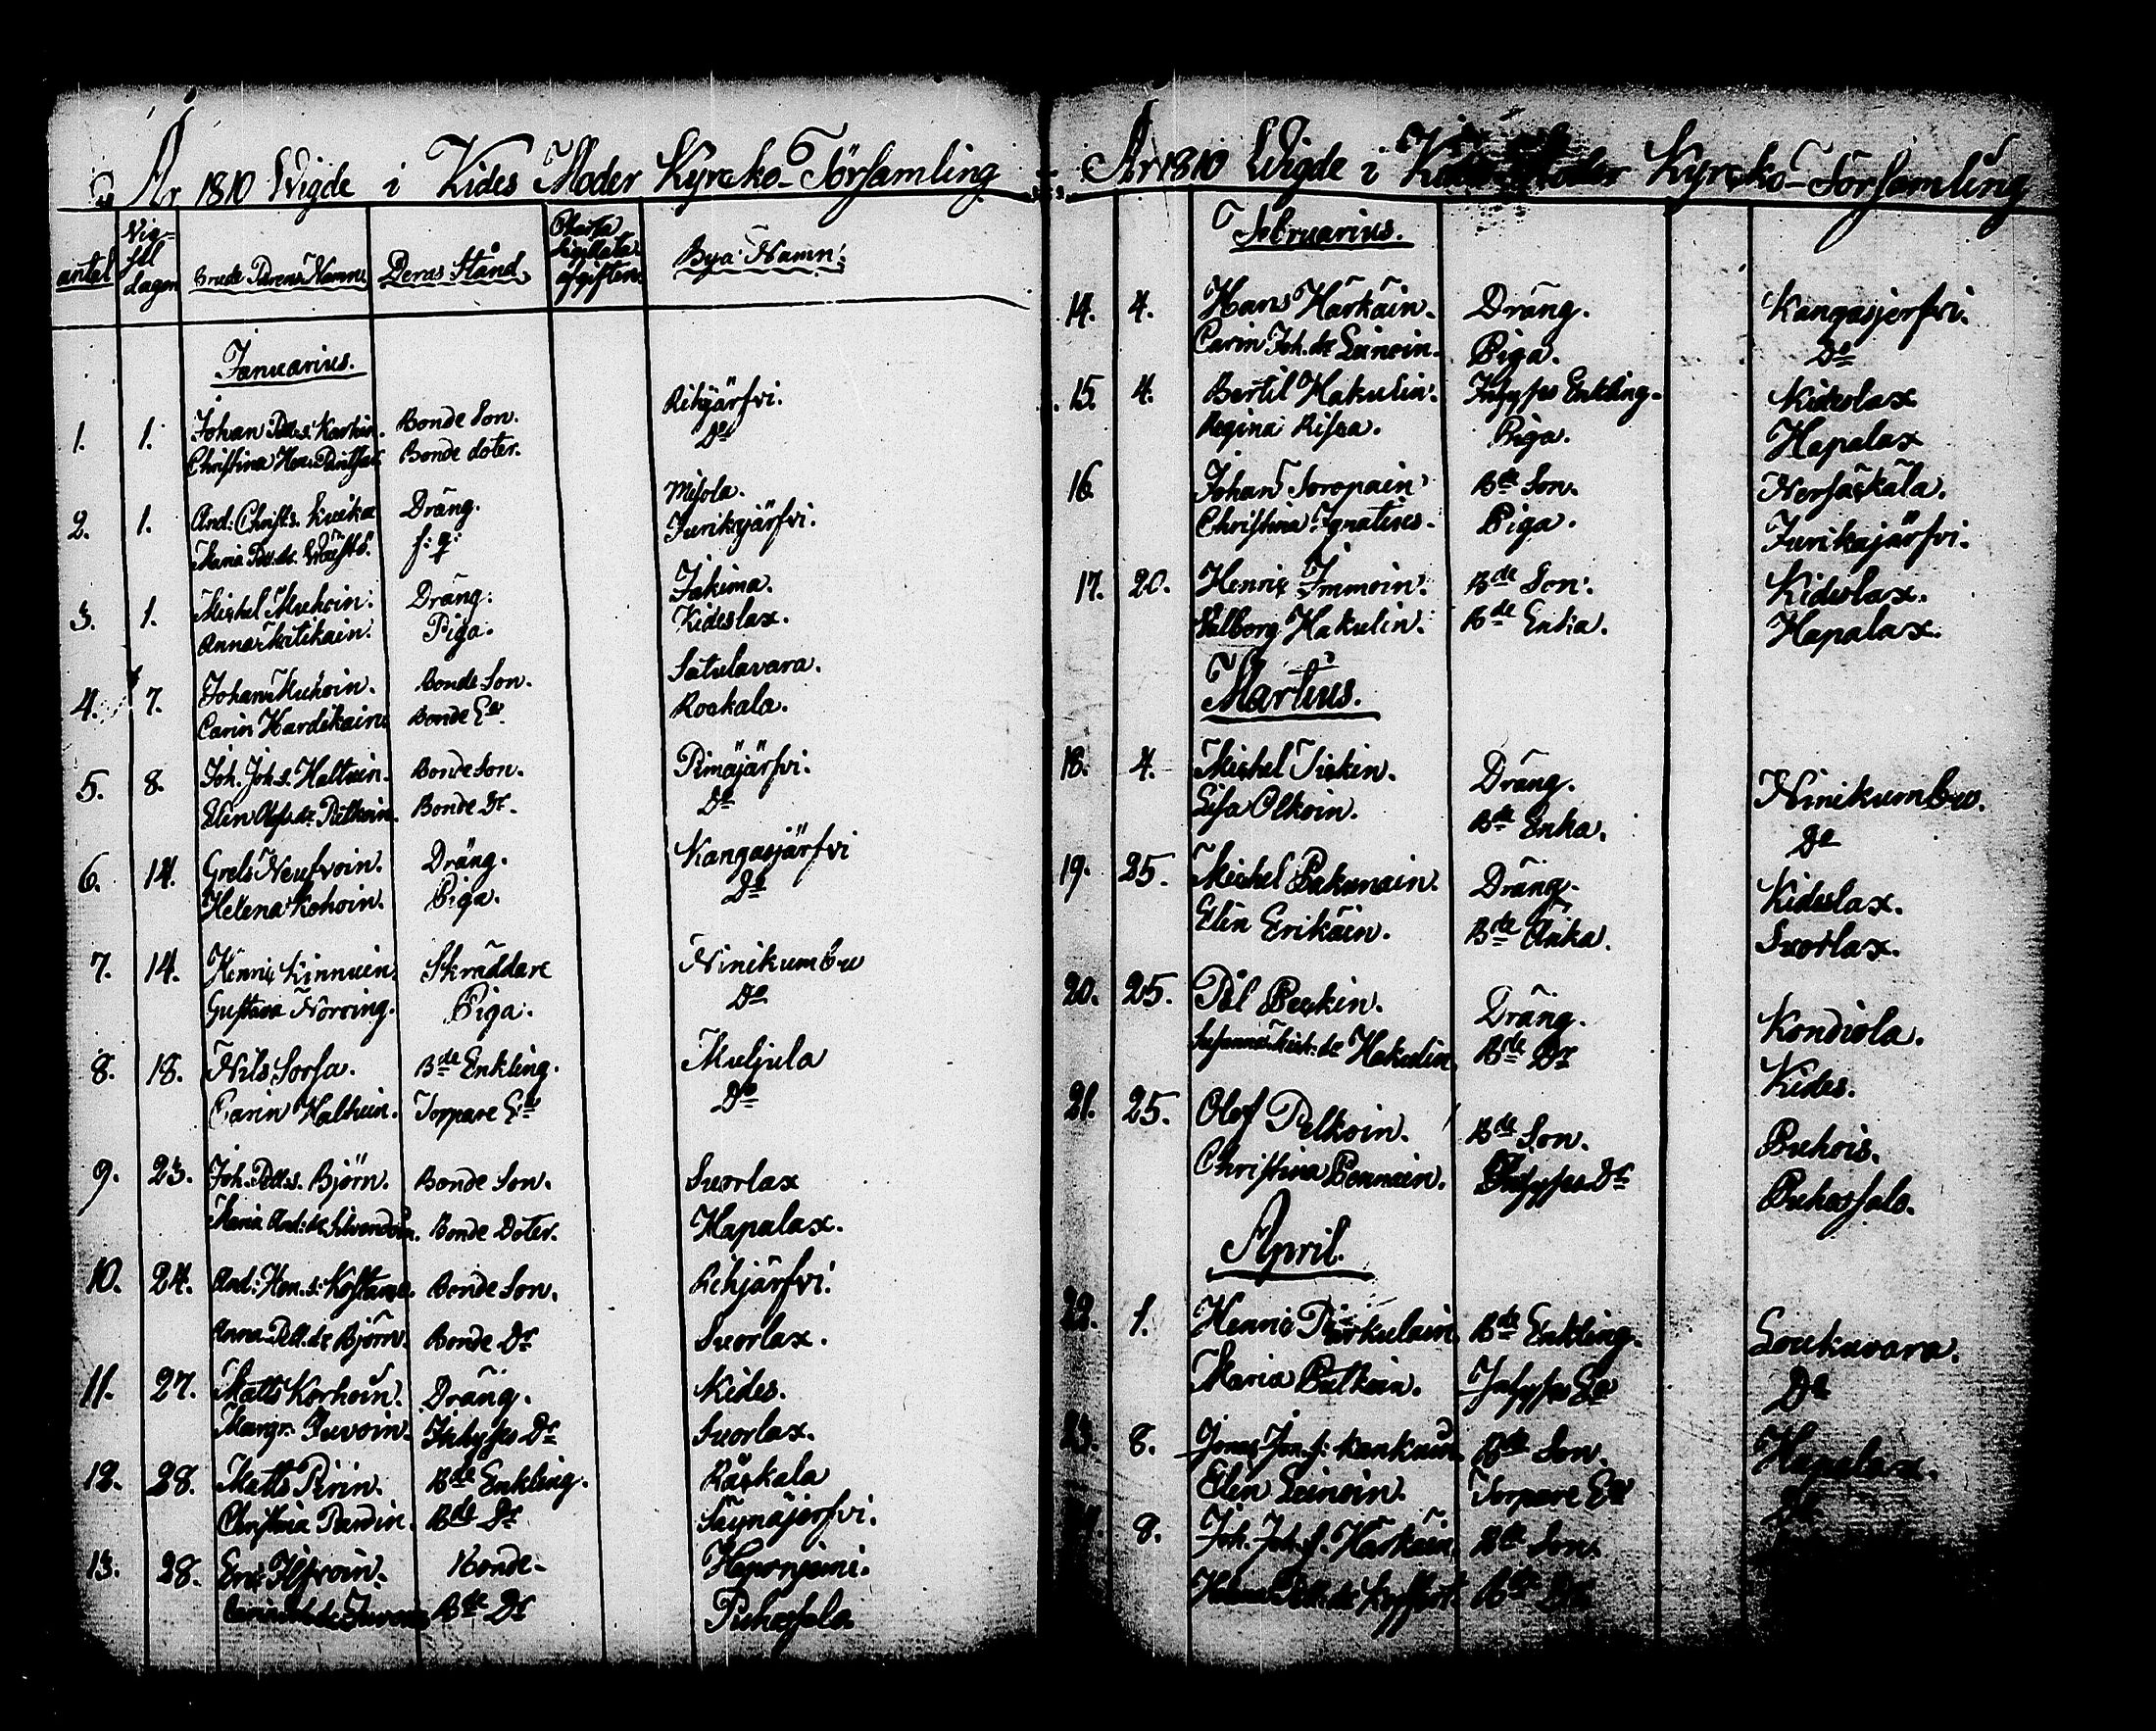 År 1810 Wigde i Kides Moder Kyrcko-Församling
antal Vigsel dagen Brude Parens Namn. Deras Stånd. Charta Sigillata afgiften Bya Namn:
Januarius.
1. 1. Johan Pett.s. Karhin. Bonde Son. Rihijärfvi.
Christina Hen: Bonde doter. Do
2. 1. And: Christ.s. Kuika Dräng. Misola.
Maria Pet. dr. f: q: Jurikajärfvi.
3. 1. Michel Muhoin: Dräng: Jakima.
Anna Matikain: Piga: Kideslax.
4. 7. Johan Muhoin. Bonde Son. Satulavara.
Carin Hardikain. Bonde Ea. Rockala.
5. 8. Joh. Joh.s. Haltuin. Bonde Son. Pimäjärfvi.
Elin Olofs dr Pelkoin. Bonde Dr. Do
6. 14. Grels Neufvoin. Dräng. Kangasjärfvi
Helena Kohoin. Piga. Do
7. 14. Henric Kinnuin. Skräddare Ninikumbu
Gustava Norring. Piga. Do
8. 18. Nils Sorsa. Bde Enkling. Muljula
Carin Haltuin. Torpare Ea Do
9. 23. Joh. Pett.s. Björn. Bonde Son. Suorlax
Maria And: dr Silvendoin. Bonde Doter. Hapalax.
10. 24. And: Hen.s: Kostame. Bonde Son. Rihjärfvi.
Anna Pett. dr Björn. Bonde Dr Suorlax.
11. 27. Matts Korhoin. Dräng. Kides.
Margr. Juvoin. Inhyses Dr Suorlax.
12. 28. Matts Pirin. Bde Enkling. Räckala
Christina Pardin. Bde Dr Säynäjerfvi.
13. 28. Eric Ilfvoin. Bonde. Haponjemi.
Bde Dr Puhossalo.
År 1810 Wigde i Kides Moder Kyrcko-Församling
Februarius.
14. 4. Hans Härkäin. Dräng. Kangasjerfvi.
Carin Joh. dr Leinoin. Piga. Do
15. 4. Bertil Hakulin. Inhyses Enkling. Kideslax
Regina Risea. Piga. Hapalax
16. Johan Soropain Bde Son. Nersäckälä.
Christina Ignatius. Piga. Jurikajärfvi.
17. 20. Henric Immoin. Bde Son: Kideslax.
Valborg Hakulin. Bde Enka. Hapalax.
Martius.
18. 4. Michel Tickin. Dräng. Ninikumbu.
Lisa Olkoin. Bde Enka. Do
19. 25. Michel Pakarain. Dräng. Kideslax.
Elin Erikäin. Bde Änka. Suorlax.
20. 25. Pål Peckin. Dräng. Kondiola.
Susanna Mich: dr Hakulin Bde Dr Kides.
21. 25. Olof Pelkoin. Bde Son. Puhois.
Christina Pennain. Inhyses Dr Puhossalo.
April.
22. 1. Henric Bde Enkling. Loukuvara.
Maria Pulkin. Inhyses Ea Do
23. 8. Jonas Jon. s: Kankuin Bde Son. Hapalax.
Elin Leinoin. Torpare Ea Do
8. Joh. Joh. s. Härkäin Bde Son.
Bde Dr